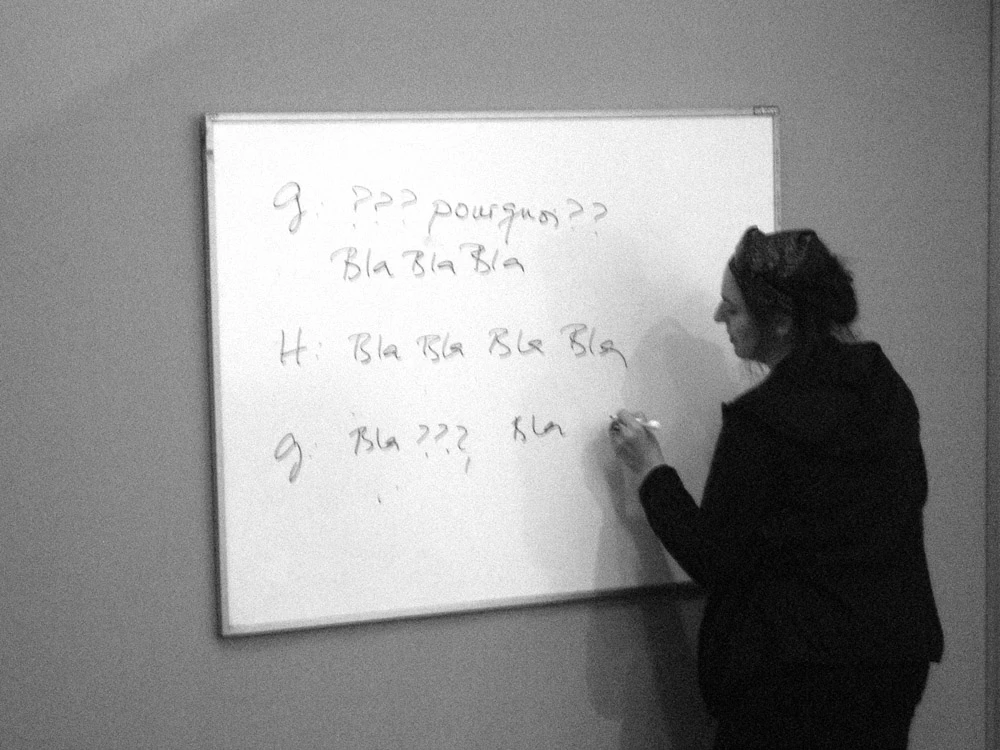 G: ??? pourquoi??
Bla Bla Bla
H: Bla Bla Bla Bla
G: Bla ??? Bla